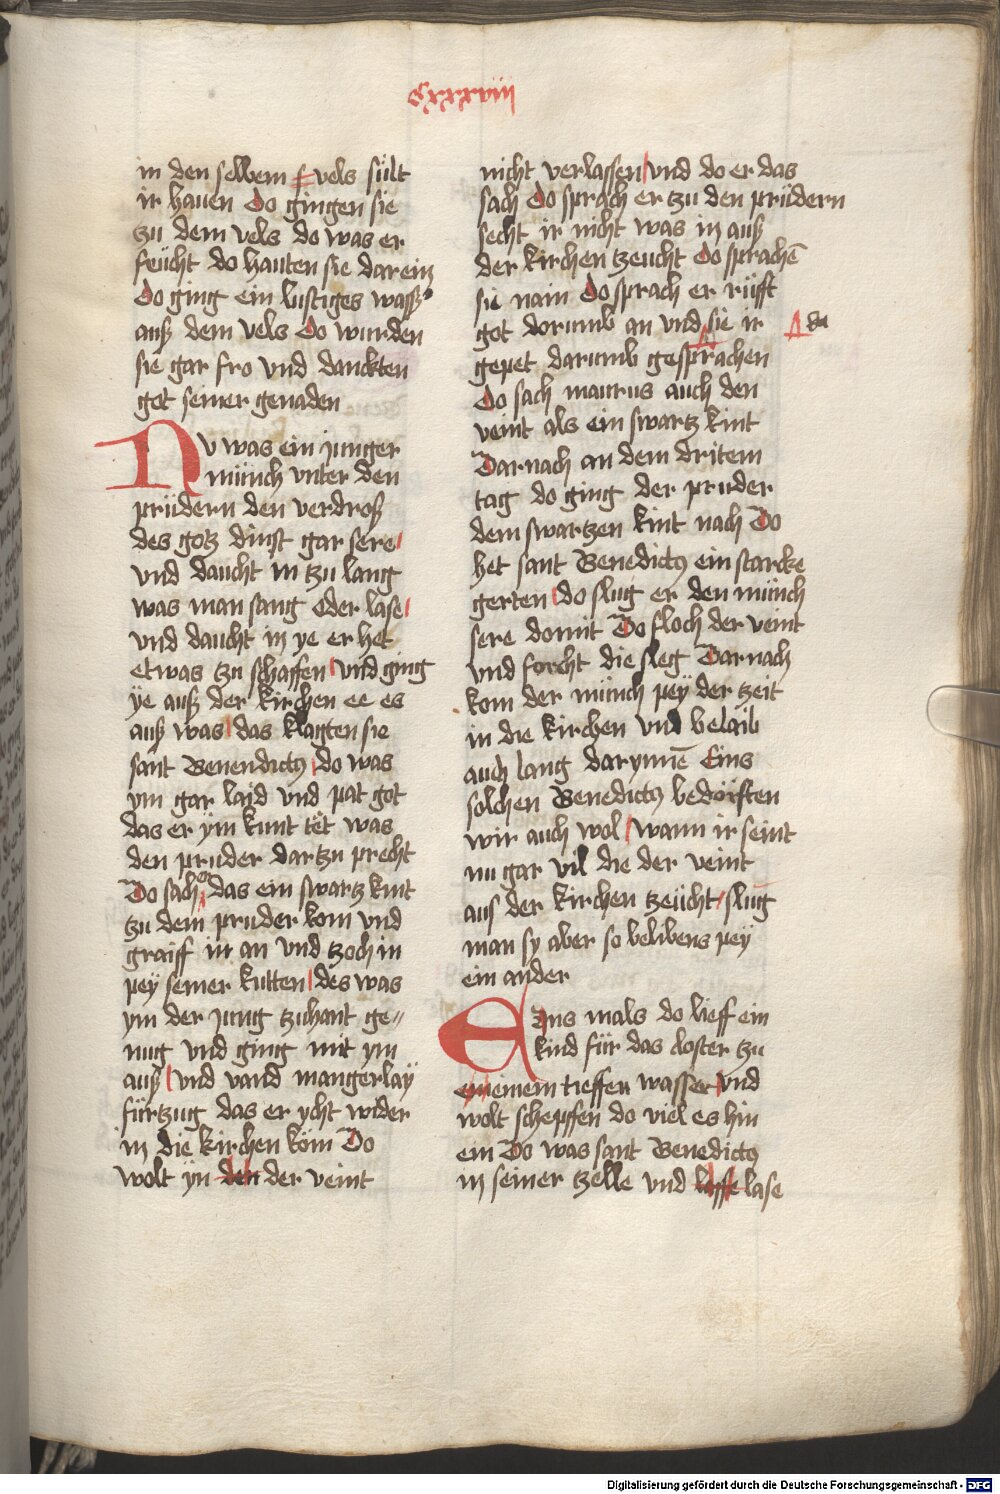 Cxxxviii
in den selbem vels sült
ir hauen Do gingen sie
zu dem vels do was er
feücht do hauten sie darein
Do ging ein lustiges wasser
auß dem vels Do wurden
sie gar fro vnd danckten
got seiner genaden
Nv was ein junger
münch vnter den
prüdern den verdroß
des gotz dinst gar sere
vnd daucht in tzu lang
was man sang oder lase
vnd daucht in ye er het
etwas zu schaffen vnd ging
ye auß der kirchen ee es
auß was das klagten sie
sant Benendictus do was
ym gar laid vnd pat got
das er ym kunt tet was
den pruder dartzu precht
Do sach er das ein swartz kint
zu dem pruder kom vnd
graiff in an vnd tzoch in
pey seiner kutten des was
ym der jung tzuhant ge⸗
nug vnd ging mit ym
auß vnd vand mangerlay
fürtzug das er ycht wider
in die kirchen köm Do
wolt yn den der veint
nicht verlassen vnd do er das
sach Do sprach er zu den prüdern
secht ir nicht was in auß
der kirchen tzeucht Do sprachē
sie nain Do sprach er rüfft
got dorumb an vnd sie ir
da
gepet darumb gesprachen
Do sach maurus auch den
veint als ein swartz kint
Darnach an dem dritem
tag do ging der pruder
dem swartzen kint nach Do
het sant Benedictus ein starcke
gerten do slug er den münch
sere domit Do floch der veint
vnd forcht die sleg Darnach
kom der münch pey der tzeit
in die kirchen vnd belaib
auch lang darynnē Eins
solchen Benedictus bedörften
wir auch wol wann ir seint
nu gar vil die der veint
aus der kirchen tzeücht slug
man sy aber so belibens pey
ein ander
Eins mals do lieff ein
kind für das closter zu
einem tieffen wasser vnd
wolt schepffen do viel es hin
ein Do was sant Benedictus
in seiner tzelle vnd lase